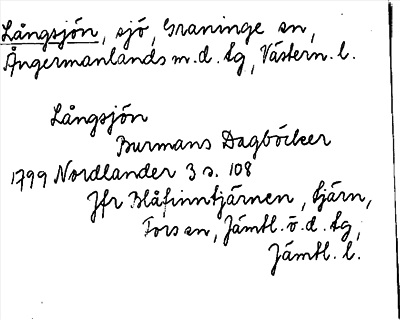 Långsjön, sjö, Graninge sn,
Ångermanlands m.d. tg, Västern. l.
Långsjön
Burmans Dagböcker
1799 Nordlander 3 s. 108
Jfr Blåfinntjärnen, tjärn,
Fors sn, Jämtl. ö.d. tg,
Jämtl. l.